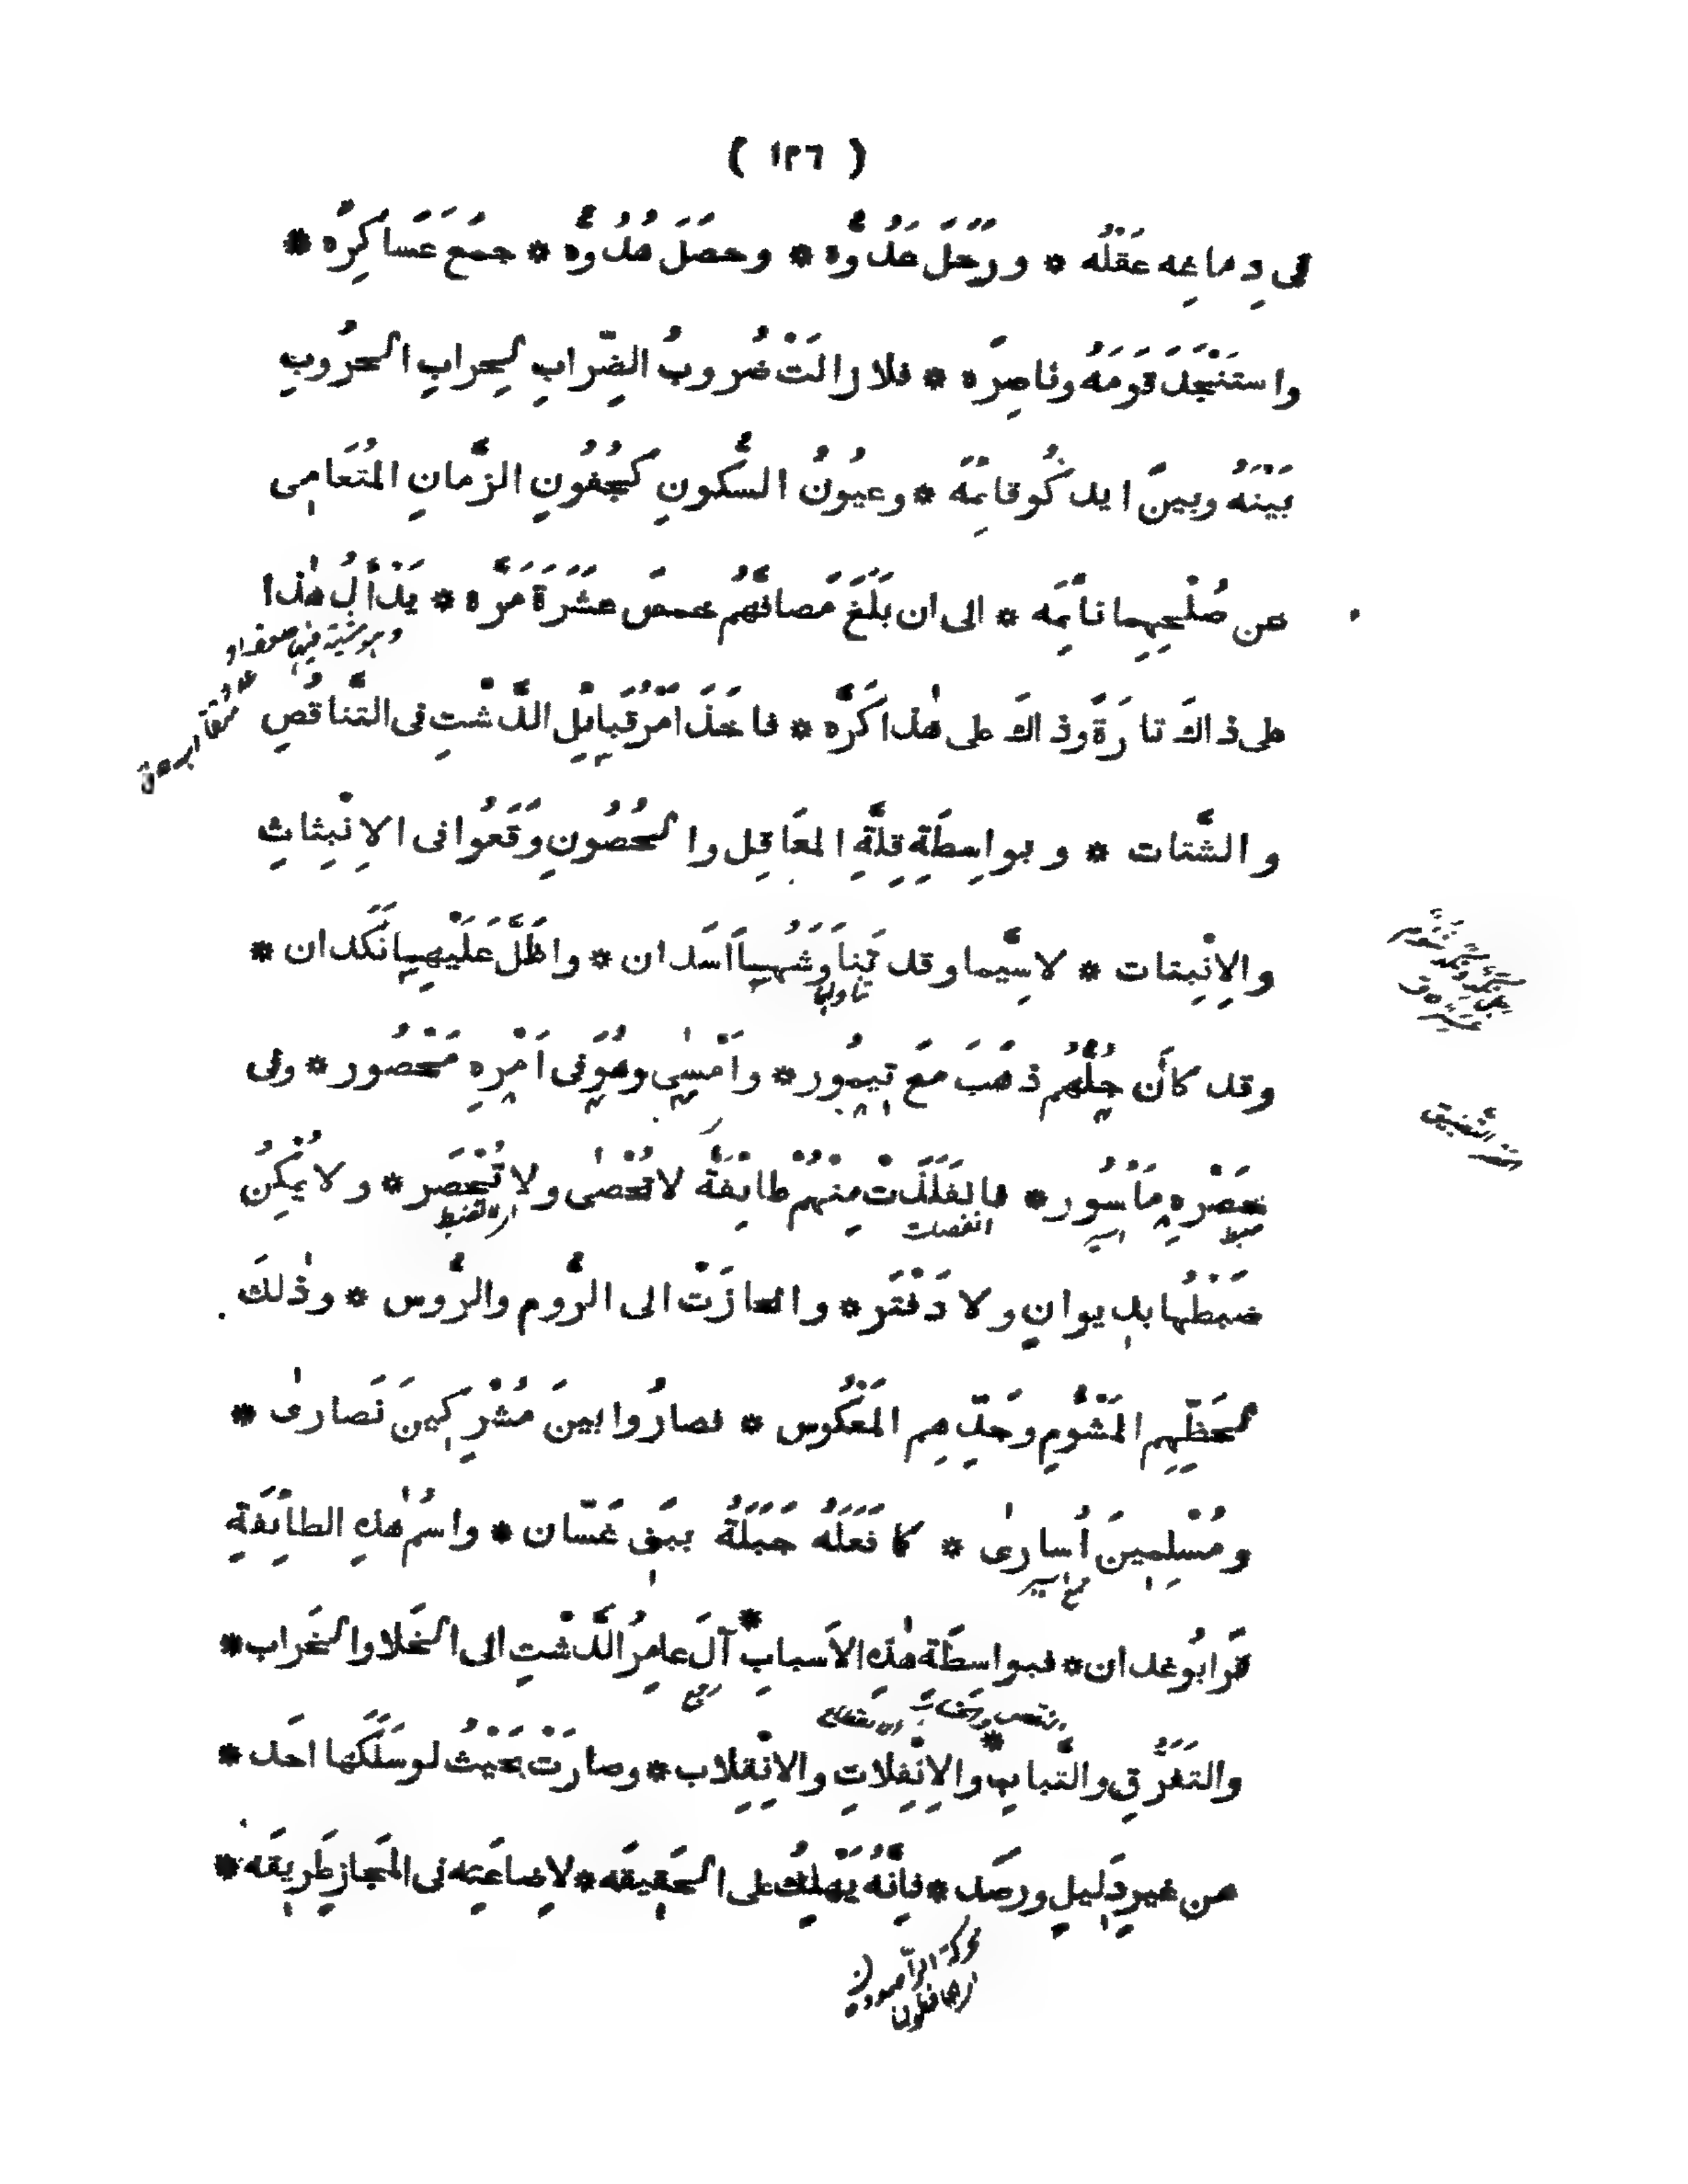 ( ١٢٦ )
فى دِماغِه عَقْلُه * ورَحَّلَ عَدُوَّهُ * وحصَلَ هُدُوُّهُ * جمَع عَساكِرَه *
واستَنْجَدَ قومَهُ وناصِرَه * فلا زالَتْ ضُروبُ الضِّرابِ لحِرابِ الحرُوبِ
بَيْنَهُ وبينَ ايدكُو قائمَه * وعيُونُ السُّكونِ كجُفُونِ الزَّمانِ المُتَعامِى
عن صُلْحِهِما نائمَه * الى ان بَلَغَ مَصافُّهُم خمسَ عشَرَةَ مَرَّه * يَدْأَلُ هٰذا
على ذاكَ تارَةً وذاكَ على هٰذا كَرَّه * فاخَذَ امْرُ قبايِلِ الدَّشْتِ فى التَّناقُصِ
والشَّتات * وبواسِطَةِ قلَّةِ المعَاقِلِ والحُصُونِ وَقَعُوا فى الاِنْبِثاثِ
والاِنْبِتات * لاسِيَّما وقد تَناوَشَهُما اسَدان * واظَلَّ عَلَيْهِما نَكَدان *
تناولها
وقد كانَ جُلُّهُم ذهَبَ مَعَ تيمُور * وامْسٰى وهُوَ فى اَمْرِهِ مَحْصُور * وفى
حَصْرِهِ مَأْسُور * فانفَلَذَتْ مِنْهُمْ طائِفَةٌ لا تُحْصٰى ولا تُحْصَر * ولا يُمْكِنُ
ضبط
اسير
انفصلت
ضَبْطُها بدِيوانٍ ولا دَفْتَر * وانحازَتْ الى الرُّوم والرُّوس * وذٰلكَ
لحَظِّهِم المَشْؤُمِ وجَدِّهِم المَعْكُوس * فصارُوا بينَ مُشْرِكِينَ نَصارىٰ *
ومُسْلِمِينَ اُسارىٰ * كما فَعَلَهُ جَبَلَةُ ببَنِى غَسّان * واسْمُ هٰذِهِ الطائفَةِ
جمع اسير
قَرابُوغدان * فبواسِطَةِ هٰذِهِ الاَسبابِ آلَ عامِرُ الدَّشْتِ الى الخَلا والخَراب *
رجع
والتَفَرُّقِ والتَّبابِ والاِنْفِلاتِ والاِنْقِلاب * وصارَتْ بحَيْثُ لو سَلَكَها احَد *
من غيرِ دَلِيلٍ ورصَد * فاِنَّهُ يَهْلِكُ على الحَقِيقَه * لاِضاعَتِه فى المَجازِ طَرِيقَه *